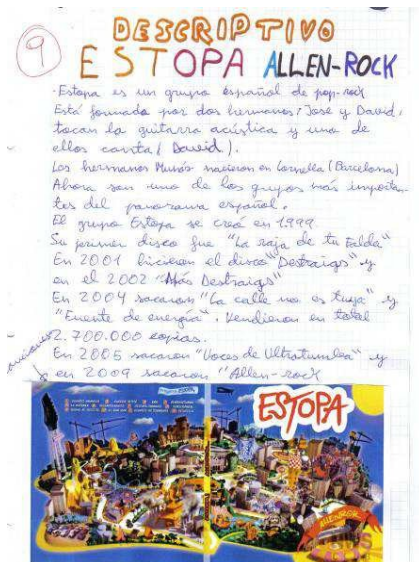 9
DESCRIPTIVO
ESTOPA ALLEN-ROCK
- Estopa es un grupo español de pop-rock
Está formado por dos hermanos: Jose y David,
tocan la guitarra acústica y uno de
ellos canta (David).
Los hermanos Muñoz nacieron en Cornella (Barcelona)
Ahora son uno de los grupos más importan-
tes del panorama español.
El grupo Estopa se creó en 1999.
Su primer disco fue "La raja de tu falda"
En 2001 hicieron el disco "Destrangis" y
en el 2002 "Más Destrangis"
En 2004 sacaron "La calle no es tuya" y
"Fuente de energía". Vendieron en total
2.700.000 copias.
En 2005 sacaron "Voces de Ultratumba" y
en 2009 sacaron "Allen-rock
ESTOPA
ALLENROCK